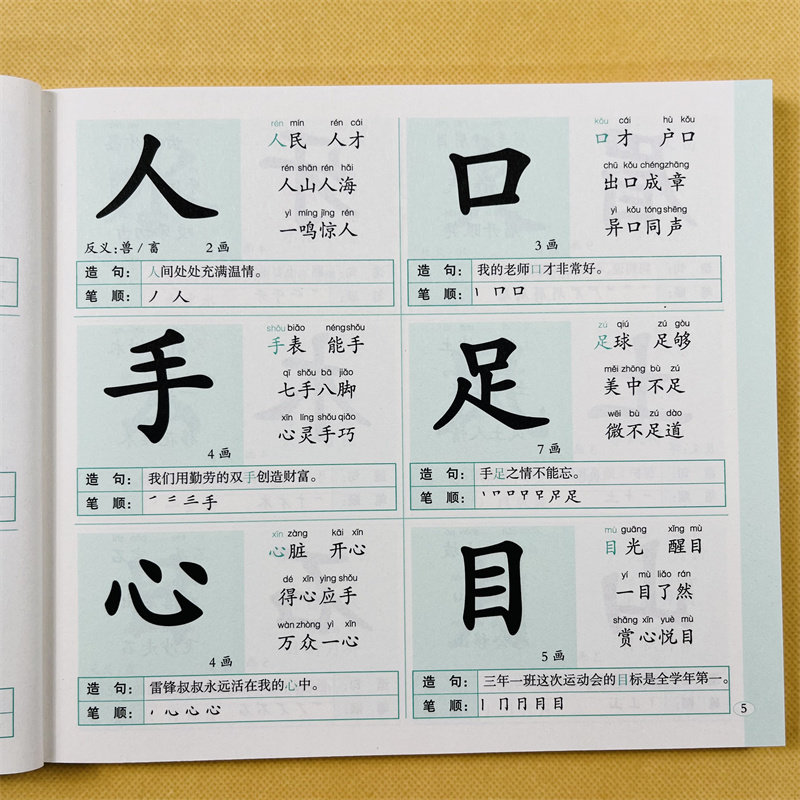 人
rén mín rén cái
人民 人才
rén shān rén hǎi
人山人海
yì míng jīng rén
一鸣惊人
反义:兽/畜 2画
造 句: 人间处处充满温情。
笔 顺: 丿 人
口
kǒu cái hù kǒu
口才 户口
chū kǒu chéng zhāng
出口成章
yì kǒu tóng shēng
异口同声
3画
造 句: 我的老师口才非常好。
笔 顺: 丨 冂 口
手
shǒu biǎo néng shǒu
手表 能手
qī shǒu bā jiǎo
七手八脚
xīn líng shǒu qiǎo
心灵手巧
4画
造 句: 我们用勤劳的双手创造财富。
笔 顺: 手
足
zú qiú zú gòu
足球 足够
měi zhōng bù zú
美中不足
wēi bù zú dào
微不足道
7画
造 句: 手足之情不能忘。
笔 顺: 丨 冂 口 足
心
xīn zàng kāi xīn
心脏 开心
dé xīn yìng shǒu
得心应手
wàn zhòng yì xīn
万众一心
4画
造 句: 雷锋叔叔永远活在我的心中。
笔 顺: 心
目
mù guāng xǐng mù
目光 醒目
yí mù liǎo rán
一目了然
shǎng xīn yuè mù
赏心悦目
5画
造 句: 三年一班这次运动会的目标是全学年第一。
笔 顺: 丨 冂 月 目
5